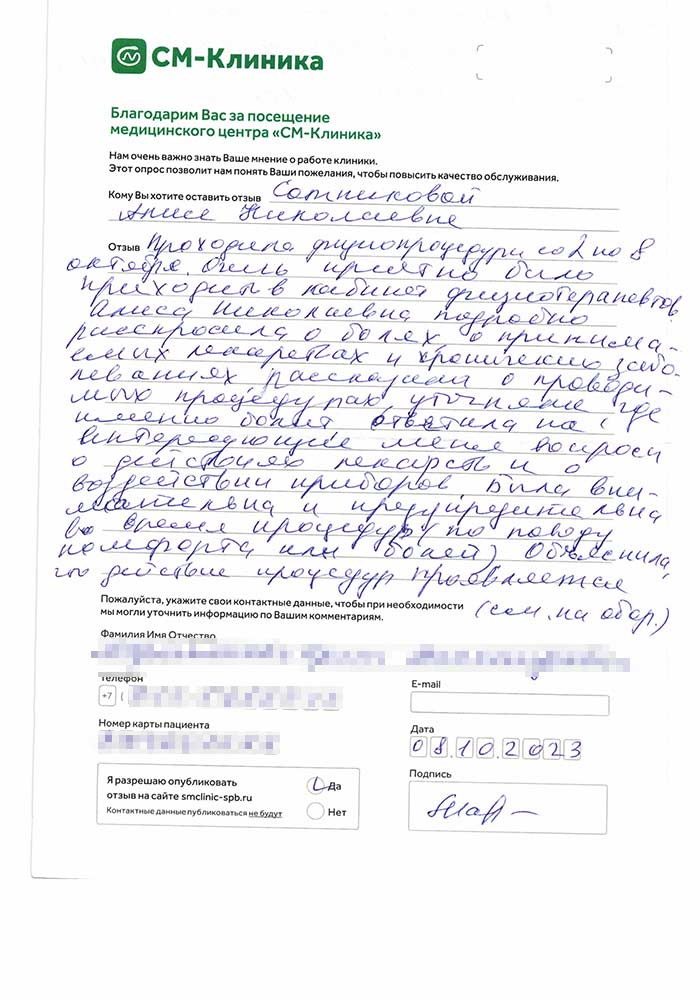 СМ-Клиника
Благодарим Вас за посещение
медицинского центра «СМ-Клиника»
Нам очень важно знать Ваше мнение о работе клиники.
Этот опрос позволит нам понять Ваши пожелания, чтобы повысить качество обслуживания.
Кому Вы хотите оставить отзыв Сотниковой
Алисе Николаевне
Отзыв Проходила физиопроцедуры со 2 по 8
октября. Очень приятно было
приходить в кабинет физиотерапевтов.
Алиса Николаевна подробно
расспросила о болях о принима-
емых лекарствах и хронических забо-
леваниях рассказала о проводи-
мых процедурах, уточняла где
именно болит ответила на
интересующие меня вопросы
о действиях лекарств и о
воздействии приборов. Была вни-
мательна и предупредительна
во время процедур (по поводу
комфорта или болей) Объяснила,
что действие процедур проявляется
(см. на обор.)
Пожалуйста, укажите свои контактные данные, чтобы при необходимости
мы могли уточнить информацию по Вашим комментариям.
Фамилия Имя Отчество
Телефон
+7 (
E-mail
Номер карты пациента
Дата
08.10.2023
Я разрешаю опубликовать
отзыв на сайте smclinic-spb.ru
Контактные данные публиковаться не будут
Да
Нет
Подпись